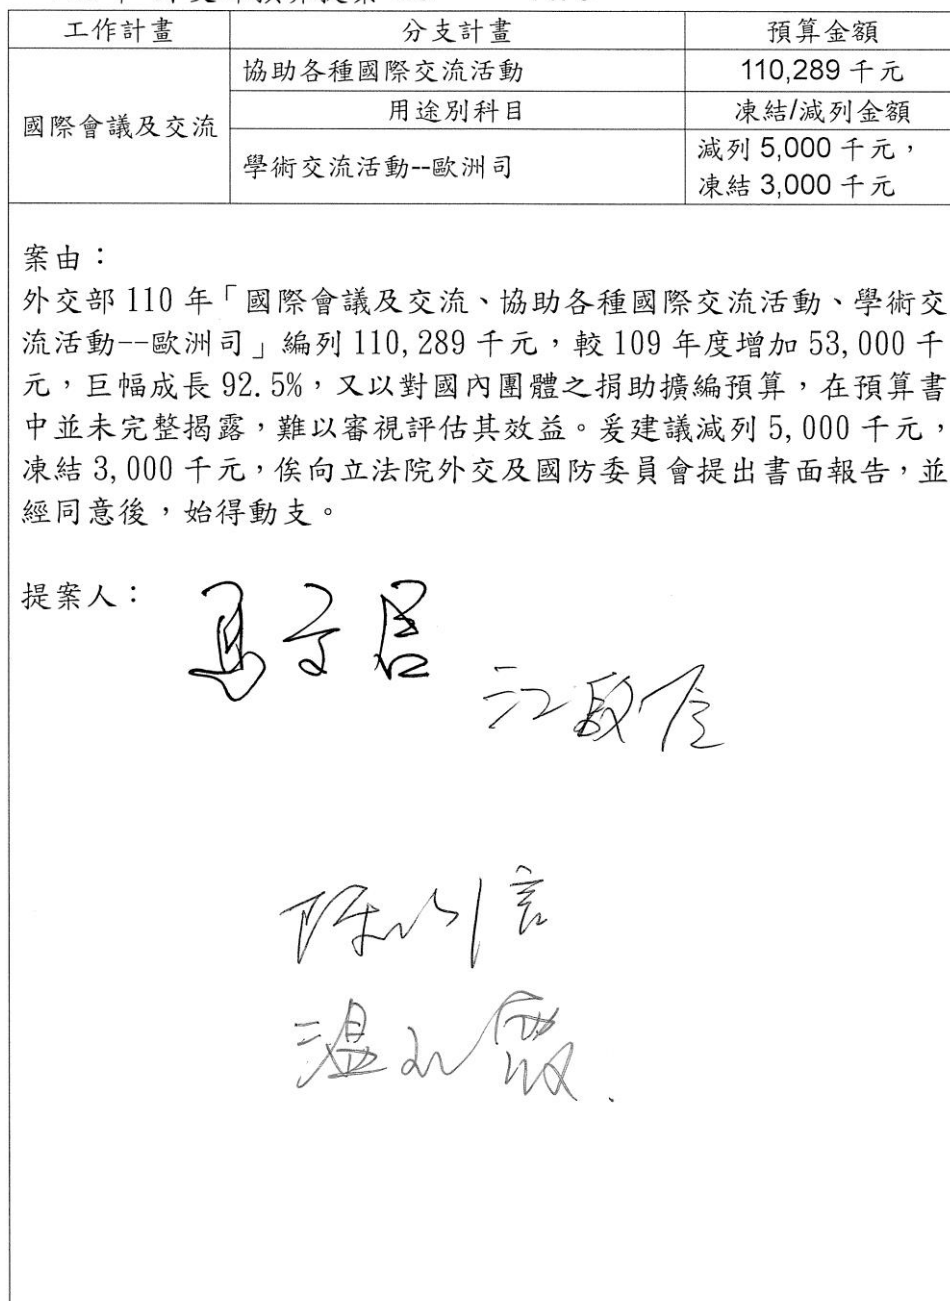 工作計畫 分支計畫 預算金額
國際會議及交流 協助各種國際交流活動 110,289 千元
用途別科目 凍結/減列金額
學術交流活動--歐洲司 減列 5,000 千元，
凍結 3,000 千元
案由：
外交部 110 年「國際會議及交流、協助各種國際交流活動、學術交
流活動--歐洲司」編列 110,289 千元，較 109 年度增加 53,000 千
元，巨幅成長 92.5%，又以對國內團體之捐助擴編預算，在預算書
中並未完整揭露，難以審視評估其效益。爰建議減列 5,000 千元，
凍結 3,000 千元，俟向立法院外交及國防委員會提出書面報告，並
經同意後，始得動支。
提案人：
江啟臣
陳以信
溫玉霞